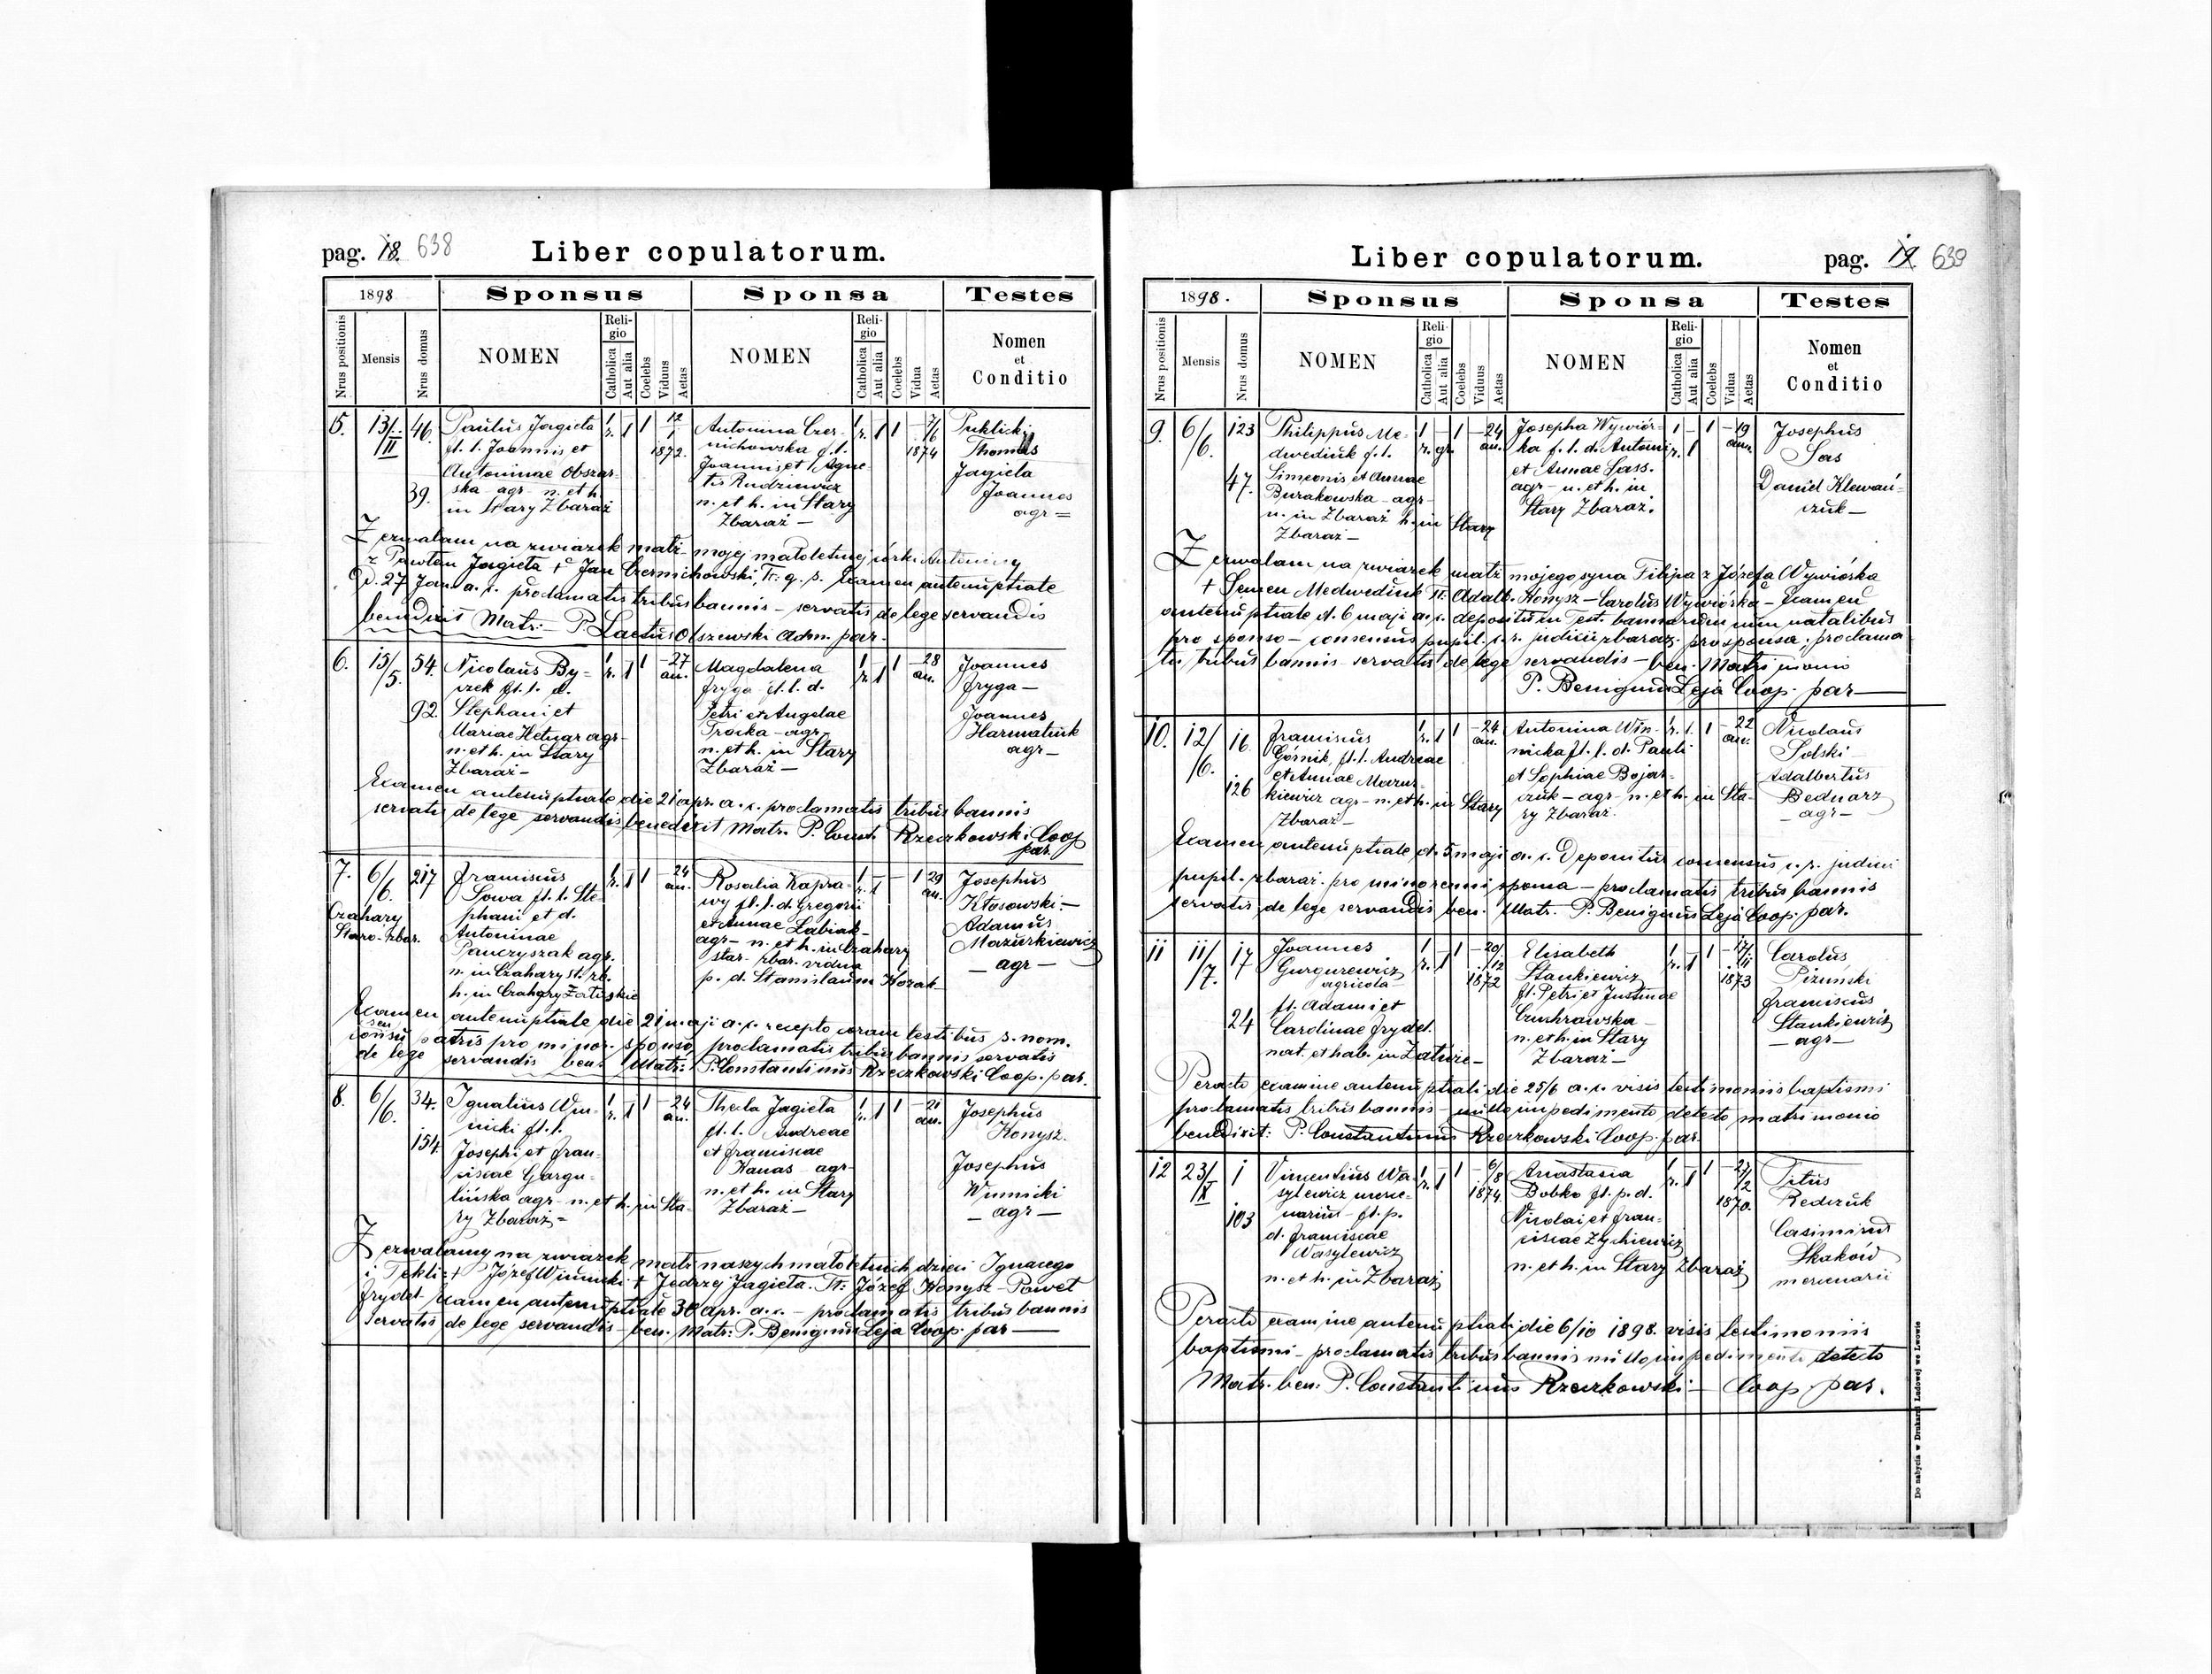 pag. 18. 638
Liber copulatorum.
1898
Sponsus
Sponsa
Testes
Nrus positionis
Mensis
Nrus domus
NOMEN
Religio
Catholica
Aut alia
Coelebs
Viduus
Aetas
NOMEN
Religio
Catholica
Aut alia
Coelebs
Vidua
Aetas
Nomen
et
Conditio
5. 13/II 46.
39.
Paulus Jagieła
f. l. Joannis et
Antoninae Obszar-
ska agr- n. et h.
in Stary Zbaraż
1 r. 1 1 12/1 1872.
Antonina Czer-
nichowska f. l.
Joannis et Agne-
tis Rudziewicz
n. et h. in Stary
Zbaraż —
1 r. 1 1 7/6 1874
Puklicki
Thomas
Jagieła
Joannes
agr =
Zezwalam na związek matż- mojej małoletniej córki Antoniny
z Pawłem Jagieła + Jan Czernichowski, Tr. q. s. Examen antenuptiale
d. 27 Jan. a. c. proclamatis tribus bannis - servatis de lege servandis
benedixit Matr:- P. Laetus Olszewski Adm. par.
6. 15/5. 54.
92.
Nicolaus By-
czek f. l. d.
Stephani et
Mariae Hetnar agr-
n. et h. in Stary
Zbaraż -
1 r. 1 1 27 an.
Magdalena
Fryga f. l. d.
Petri et Angelae
Trocka - agr-
n. et h. in Stary
Zbaraż —
1 r. 1 1 28 an.
Joannes
Fryga —
Joannes
Harmatiuk
agr —
Examen antenuptiale die 21 apr. a. c. proclamatis tribus bannis
servatis de lege servandis benedixit Matr. P. Const. Rzeczkowski Coop
par.
7. 6/6. 217
Czahary
Staro-zbar.
Franciscus
Sowa f. l. Ste-
phani et d.
Antoninae
Panczyszak agr.
n. in Czahary st. zb.
h. in Czahary Załuskie
1 r. 1 1 24 an.
Rosalia Kapra-
wy f. l. d. Gregorii
et Annae Łabiak-
agr- n. et h. in Czahary
star. zbar. vidua
p. d. Stanislaum Kozak
1 r. 1 1 29 an.
Josephus
Kłosowski -
Adamus
Mazurkiewicz
— agr —
Examen antenuptiale die 21 maji a. c. recepto coram testibus s. nom.
consensu patris pro minor. sponso, proclamatis tribus bannis servatis
de lege servandis ben. Matr: P. Constantinus Rzeczkowski Coop. par.
8. 6/6. 34.
154.
Ignatius Win-
nicki f. l.
Josephi et Fran-
ciscae Gargu-
lińska agr- n. et h. in Sta-
ry Zbaraż =
1 r. 1 1 24 an.
Thecla Jagieła
f. l. Andreae
et Franciscae
Kanas agr-
n. et h. in Stary
Zbaraż —
1 r. 1 1 21 an.
Josephus
Konysz.
Josephus
Winnicki
— agr —
Zezwalamy na związek matż naszych małoletnich dzieci Ignacego
i Tekli: + Józef Winnicki + Jędrzej Jagieła. Tr: Józef Konysz - Paweł
Frydel- Examen antenuptiale 30 apr. a. c. - proclamatis tribus bannis
servatis de lege servandis - ben. Matr: P. Benignus Leja Coop. par —
Liber copulatorum.
pag. 19. 639
1898.
Sponsus
Sponsa
Testes
Nrus positionis
Mensis
Nrus domus
NOMEN
Religio
Catholica
Aut alia
Coelebs
Viduus
Aetas
NOMEN
Religio
Catholica
Aut alia
Coelebs
Vidua
Aetas
Nomen
et
Conditio
9. 6/6. 123
47.
Philippus Me-
dwediuk f. l.
Simeonis et Annae
Burakowska - agr-
n. in Zbaraż h. in Stary
Zbaraż —
1 r. gr. 1 24 an.
Josepha Wywiór-
ka f. l. d. Antoni
et Annae Sass.
agr- n. et h. in
Stary Zbaraż.
1 r. 1 1 19 ann.
Josephus
Sas
Daniel Klewań-
czuk —
Zezwalam na związek matż mojego syna Filipa z Józefa Wywiórka
+ Semen Medwediuk Tr. Adalb. Konysz - Carolus Wywiórka - Examen
antenuptiale d. 6 maji a. c. depositum Test. bannorum cum natalibus
pro sponso - consensus pupil. c. r. judicii zbaraz. pro sponsa, proclama-
tis tribus bannis servatis de lege servandis - ben. Matrimonio
P. Benignus Leja Coop. par —
10. 12/6. 16
126
Franciscus
Górnik, f. l. Andreae
et Annae Mazur-
kiewicz agr- n. et h. in Stary
Zbaraż —
1 r. 1 1 24 an.
Antonina Win-
nicka f. l. d. Pauli
et Sophiae Bojar-
czuk - agr- n. et h. in Sta-
ry Zbaraż.
1 r. 1. 1 22 an.
Nicolaus
Solski
Adalbertus
Bednarz
— agr —
Examen antenuptiale d. 5 maji a. c. Deponitur consensus c. r. judicii
pupil. zbaraż. pro minorenni sponsa - proclamatis tribus bannis
servatis de lege servandis ben. Matr. P. Benignus Leja Coop. par.
11 11/7. 17
24
Joannes
Gurgurewicz
agricola
fl. Adami et
Carolinae Frydel.
nat. et hab. in Załuże —
1 r. 1 1 20/12 1872
Elisabeth
Stankiewicz
fl. Petri et Justinae
n. et h. in Stary
Zbaraż —
1 r. 1 1 17/11 1873
Carolus
Piziński
Franciscus
Stankiewicz
— agr —
Peracto examine antenuptiali die 25/6 a. c. visis testimoniis baptismi
proclamatis tribus bannis - nullo impedimento detecto matrimonio
benedixit: P. Constantinus Rzeczkowski Coop. par.
12 23/X 1
103
Vincentius Wa-
sylewicz merce-
narius - fl. p.
d. Franciscae
Wasylewicz
n. et h. in Zbaraż
1 r. 1 1 6/8 1874.
Anastasia
Bobko fl. p. d.
Nicolai et Fran-
ciscae Zychiewicz
n. et h. in Stary Zbaraż
1 r. 1 1 27/2 1870.
Titus
Redczuk
Casimirus
Skaków
mercenarii
Peracto examine antenuptiali die 6/10 1898. visis testimoniis
baptismi - proclamatis tribus bannis nullo impedimento detecto
Matr. ben. P. Constantinus Rzeczkowski — Coop. par.
Do nabycia w Drukarni Ludowej we Lwowie